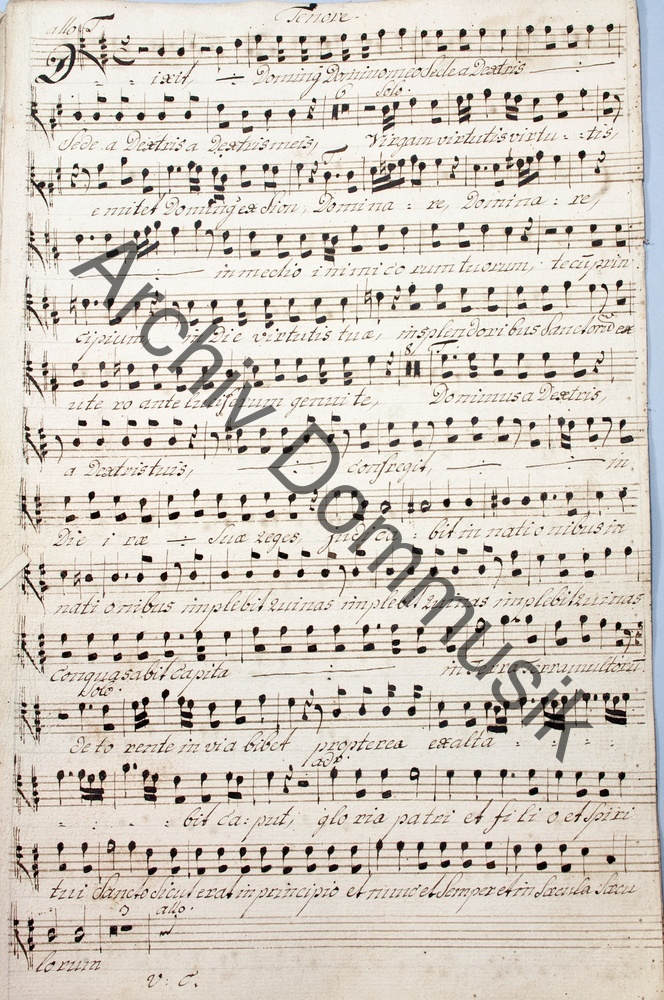 Tenore.
allo T
Dixit ÷ Doming Domino meo Sede a Dextris
6 Solo.
Sede a Dextris a Dextris meis, Virgam virtutis virtu : : tis,
T.
emitet Doming ex Sion, Domina : re, Domina : re,
in medio inimicorum tuorum, tecū prin
cipium, in Die virtutis tuæ, in splendoribus Sanctorū ex
8 T.
utero ante luciferum genui te, Dominus a Dextris,
a Dextris tuis, ÷ confregit, ÷ in
Die iræ ÷ Suæ reges, judica : bit in nationibus in
nationibus implebit ruinas implebit ruinas implebit ruinas
Conquasabit Capita ÷ in terra terra multorū
Solo.
de torente in via bibet propterea exalta : : : :
ado.
: : : : bit ca : put, gloria patri et filio et Spiri
tui Sancto Sicut erat in principio et nunc et Semper et in Sæcula Sæcu
allo.
lorum
v: c.
Archiv Dommusik